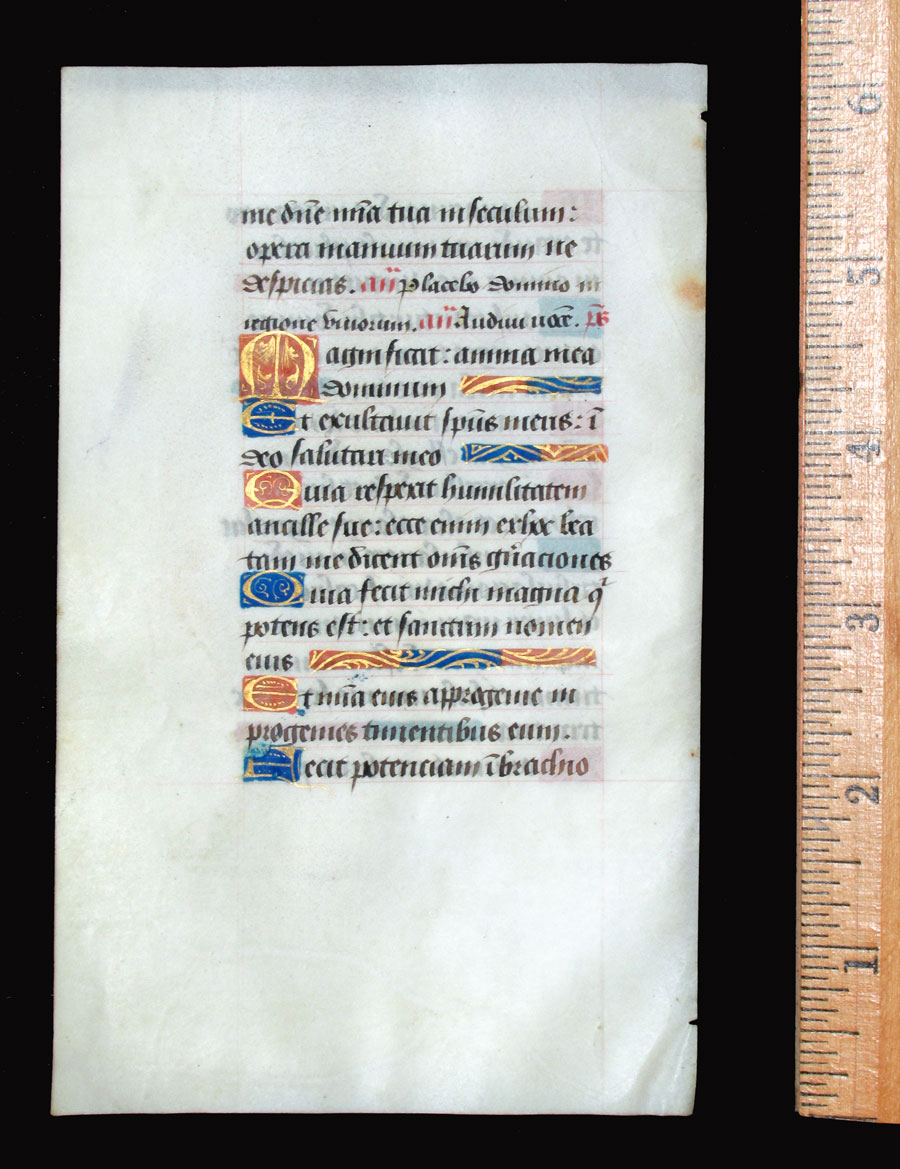 me dn̄e mīa tua in seculum:
opera manuum tuarum ne
despicias. an̄ Placebo domino in
regione viuorum. an̄ Audiui uocē. ps̄
Magnificat: anima mea
dominum
Et exultauit sp̄us meus: ī
deo salutari meo
Quia respexit humilitatem
ancille sue: ecce enim ex hoc bea
tam me dicent om̄s gn̄aciones
Quia fecit michi magna q̄
potens est: et sanctum nomen
eius
Et mīa eius a progenie in
progenies timentibus eum.
Fecit potenciam ī brachio
6
5
4
3
2
1